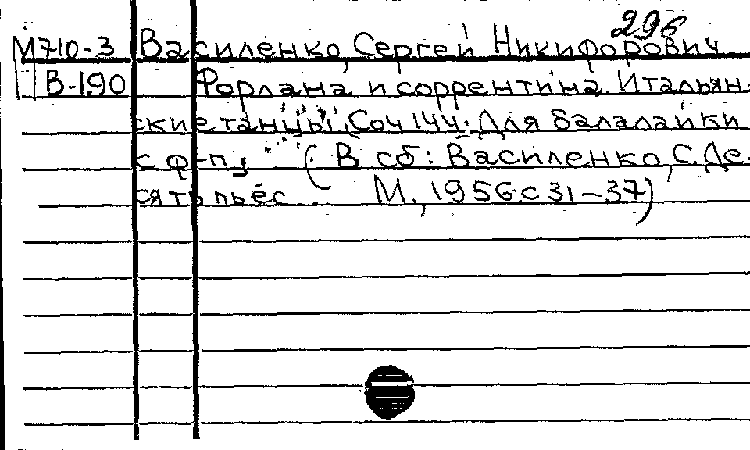 296
М710-3 Василенко, Сергей Никифорович
В-190 Форлана и соррентина. Итальян-
ские танцы, Соч 144. Для балалайки
с ф-п, (В сб: Василенко, С. Де
сять пьес. М., 1956 с 31-37)